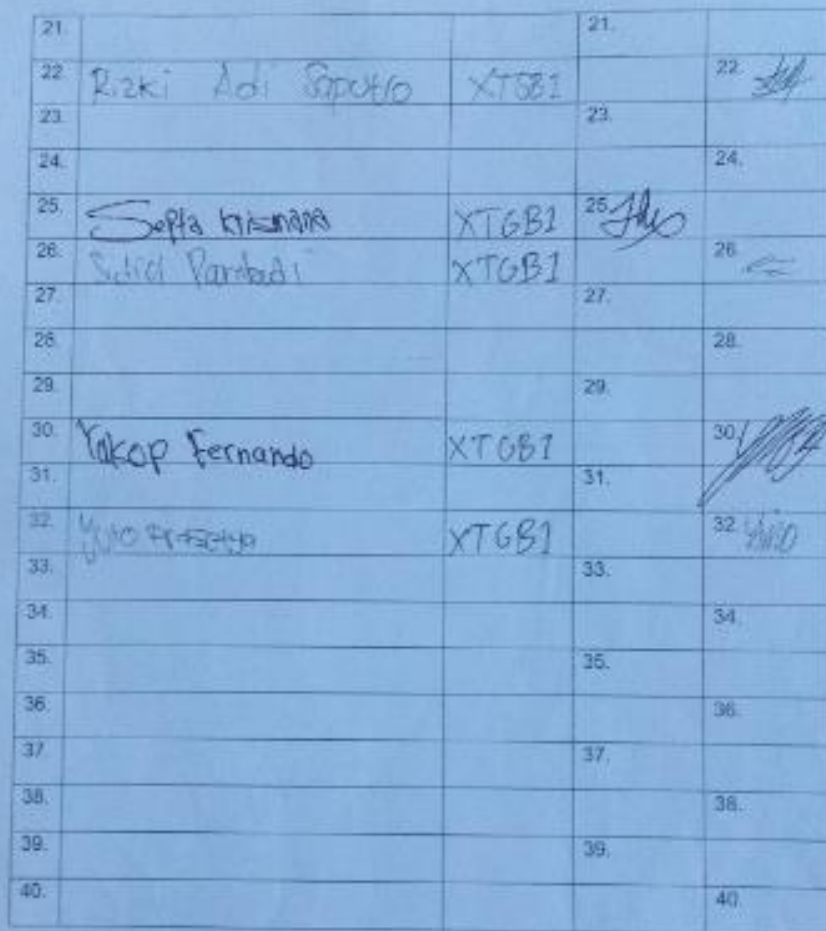 21. 21.
22. Rizki Adi Saputro XTGB1 22.
23. 23.
24. 24.
25. Septa Krisnana XTGB1 25.
26. XTGB1 26.
27. 27.
28. 28.
29. 29.
30. Yakop Fernando XTGB1 30.
31. 31.
32. XTGB1 32.
33. 33.
34. 34.
35. 35.
36. 36.
37. 37.
38. 38.
39. 39.
40. 40.